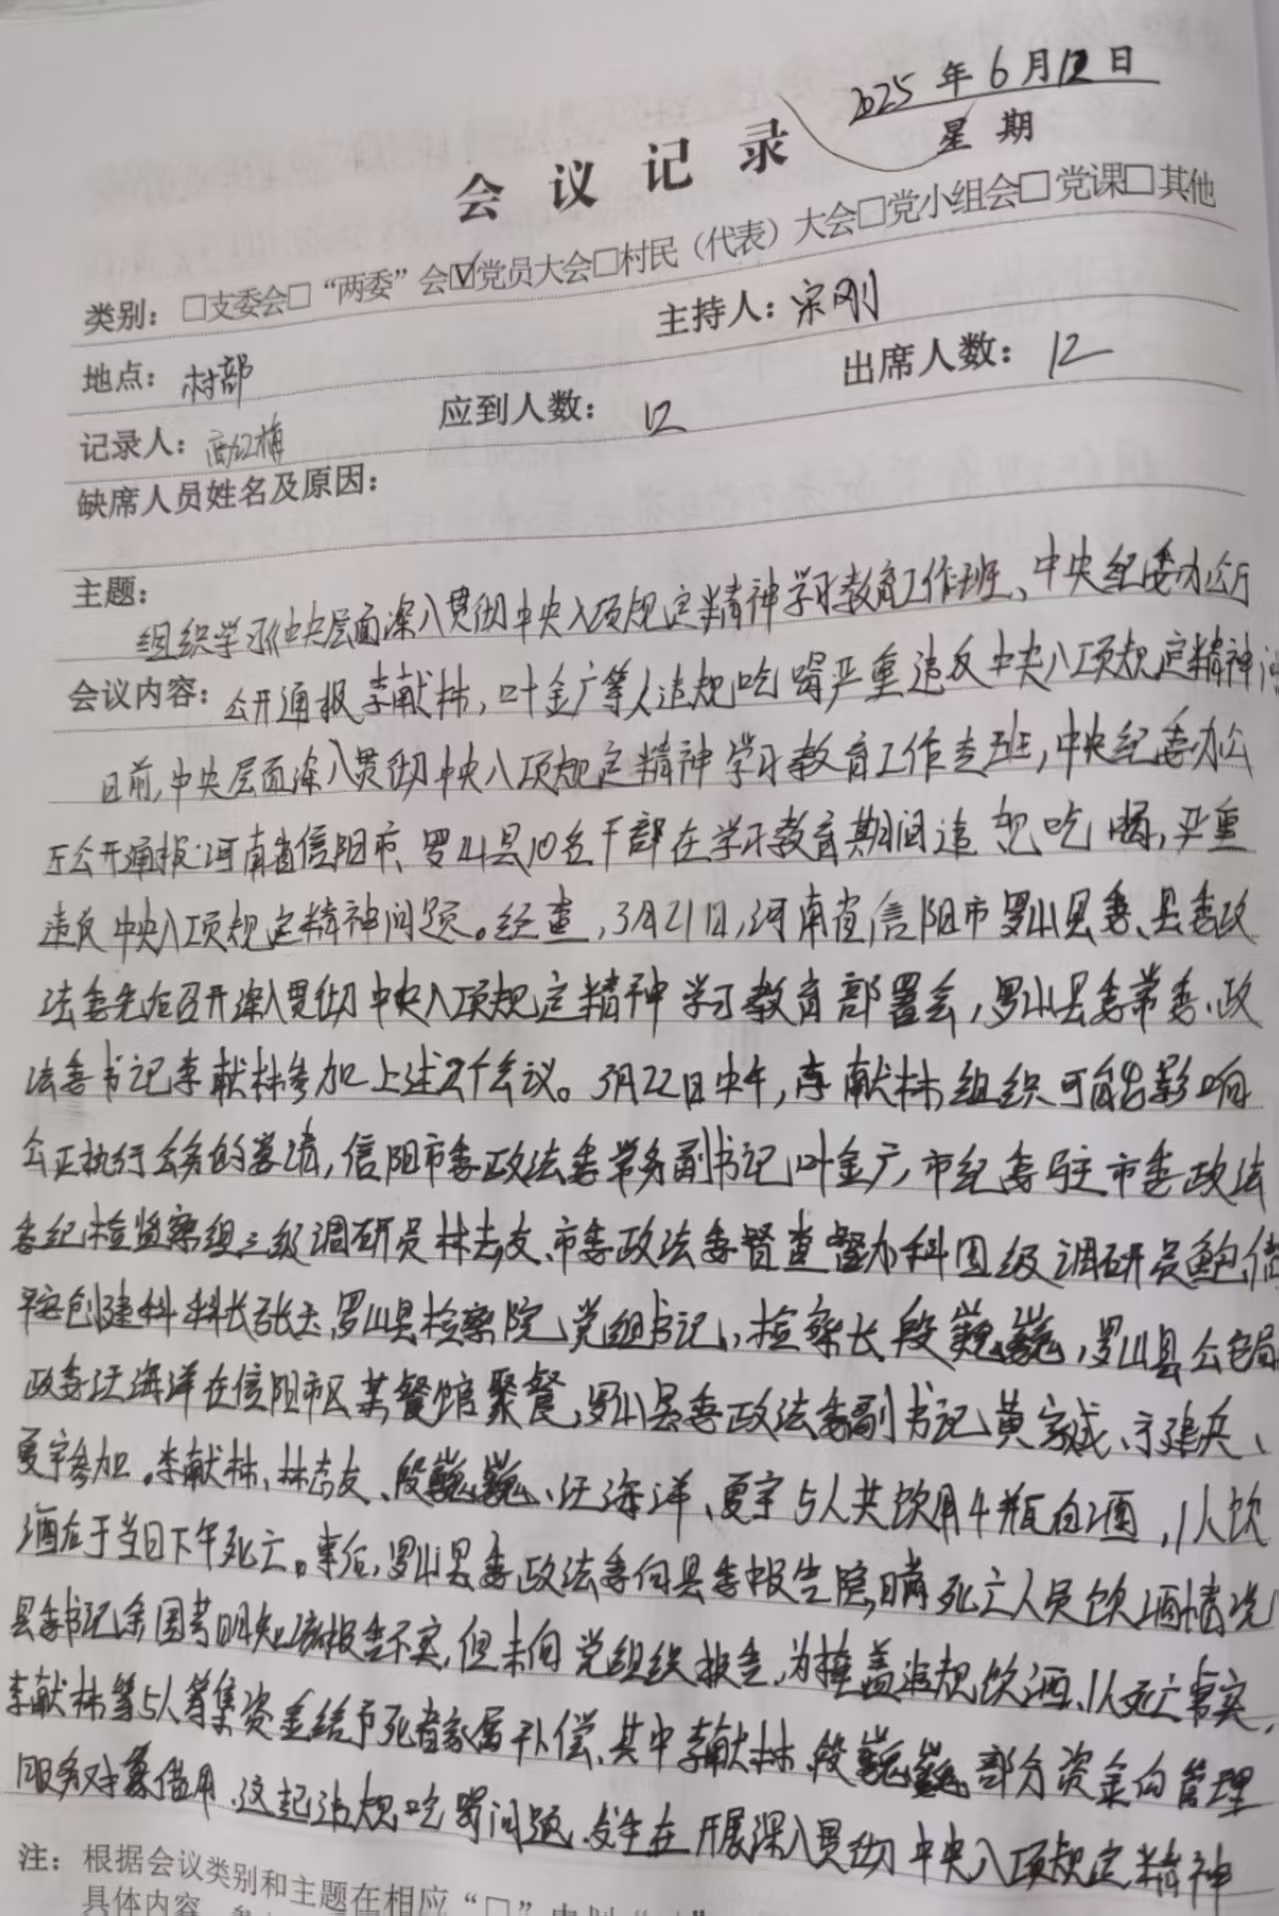 2025年6月12日
星期
会议记录
类别：□支委会□“两委”会☑党员大会□村民（代表）大会□党小组会□党课□其他
地点：村部 主持人：宋刚
记录人：高红梅 应到人数：12 出席人数：12
缺席人员姓名及原因：
主题：
组织学习《中央层面深入贯彻中央八项规定精神学习教育工作班、中央纪委办公厅
会议内容：公开通报李献林，叶金广等人违规吃喝严重违反中央八项规定精神
日前，中央层面深入贯彻中央八项规定精神学习教育工作专班，中央纪委办公
厅公开通报河南省信阳市、罗山县10名干部在学习教育期间违规吃喝，严重
违反中央八项规定精神问题。经查，3月21日，河南省信阳市罗山县委、县委政
法委先后召开深入贯彻中央八项规定精神学习教育部署会，罗山县委常委、政
法委书记李献林参加上述2个会议。3月22日中午，李献林组织可能影响
公正执行公务的宴请，信阳市委政法委常务副书记叶金广，市纪委驻市委政法
委纪检监察组三级调研员林志友、市委政法委督查督办科四级调研员鲍倩
平安创建科科长张玉，罗山县检察院党组书记，检察长段巍巍，罗山县公安局
政委汪海洋在信阳市区某餐馆聚餐，罗山县委政法委副书记黄家成、方建兵、
夏宇参加。李献林、林志友、段巍巍、汪海洋、夏宇5人共饮用4瓶白酒，1人饮
酒后于当日下午死亡。事后，罗山县委政法委向县委报告隐瞒死亡人员饮酒情况
县委书记余国芳明知该报告不实，但未向党组织报告，为掩盖违规饮酒、1人死亡事实，
李献林等5人筹集资金给予死者家属补偿、其中李献林、段巍巍部分资金向管理
服务对象借用、这起违规吃喝问题、发生在开展深入贯彻中央八项规定精神
注：根据会议类别和主题在相应“□”中划“√”
具体内容